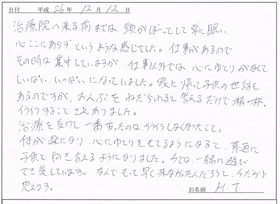 日付 平成 26年 12月 12日
治療院へ来る前までは、頭がぼーとして常に眠い
心ここにあらずというような感じでした。仕事があるので
その時は集中していますが、仕事以外では心にゆとりがなくて
いっぱい、いっぱいになっていました。家に帰って子供の世話も
あるのですが、おんぶをねだられると答えるだけで精一杯、
イライラすることさえありました。
治療を受けて一番変ったのはイライラしなくなったこと。
体が楽になり心にゆとりをもてるようになると、普通に
子供と向き合えるようになりました。今では、一緒に遊び
できています。なんでもっと早く来なかったんだろうと、
思います。
お名前 H.T